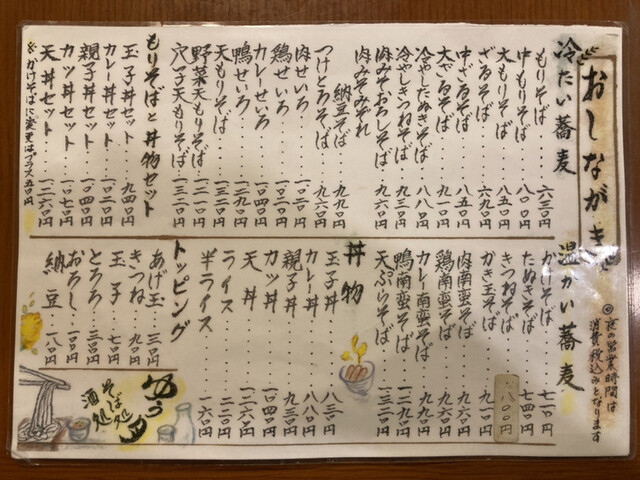 おしながき
冷たい蕎麦
もりそば・・・・六三〇円
中もりそば・・・八〇〇円
大もりそば・・・八五〇円
ざるそば・・・・六九〇円
中ざるそば・・・八五〇円
大ざるそば・・・九一〇円
冷やしたぬきそば・八八〇円
冷やしきつねそば・九三〇円
肉みそおろしそば・九六〇円
肉みそみぞれ
納豆そば・・九九〇円
つけとろそば・・・九六〇円
肉せいろ・・・・一〇二〇円
鶏せいろ・・・・一〇二〇円
カレーせいろ・・一〇四〇円
鴨せいろ・・・・一二九〇円
天もりそば・・・一三二〇円
野菜天もりそば・・一二一〇円
穴子天もりそば・・一三二〇円
もりそばと丼物セット
玉子丼セット・・・九四〇円
カレー丼セット・・一〇二〇円
親子丼セット・・・一〇四〇円
カツ丼セット・・・一〇七〇円
天丼セット・・・・一二六〇円
※かけそばに変更はプラス五〇円
温かい蕎麦
かけそば・・・・七一〇円
たぬきそば・・・七四〇円
きつねそば・・・八〇〇円
かき玉そば・・・九一〇円
肉南蛮そば・・・九六〇円
鶏南蛮そば・・・九六〇円
カレー南蛮そば・・九九〇円
鴨南蛮そば・・・一二一〇円
天ぷらそば・・・一三二〇円
丼物
玉子丼・・・・・八三〇円
カレー丼・・・・九一〇円
親子丼・・・・・九三〇円
カツ丼・・・・一〇四〇円
天丼・・・・・一二六〇円
ライス・・・・・二二〇円
半ライス・・・・一六〇円
トッピング
あげ玉・・・三〇円
きつね・・・九〇円
玉子・・・・七〇円
とろろ・・・三三〇円
おろし・・・一六〇円
納豆・・・・一八〇円
◎夜の営業時間は
消費税込みとなります
そば処
酒処
ゆう